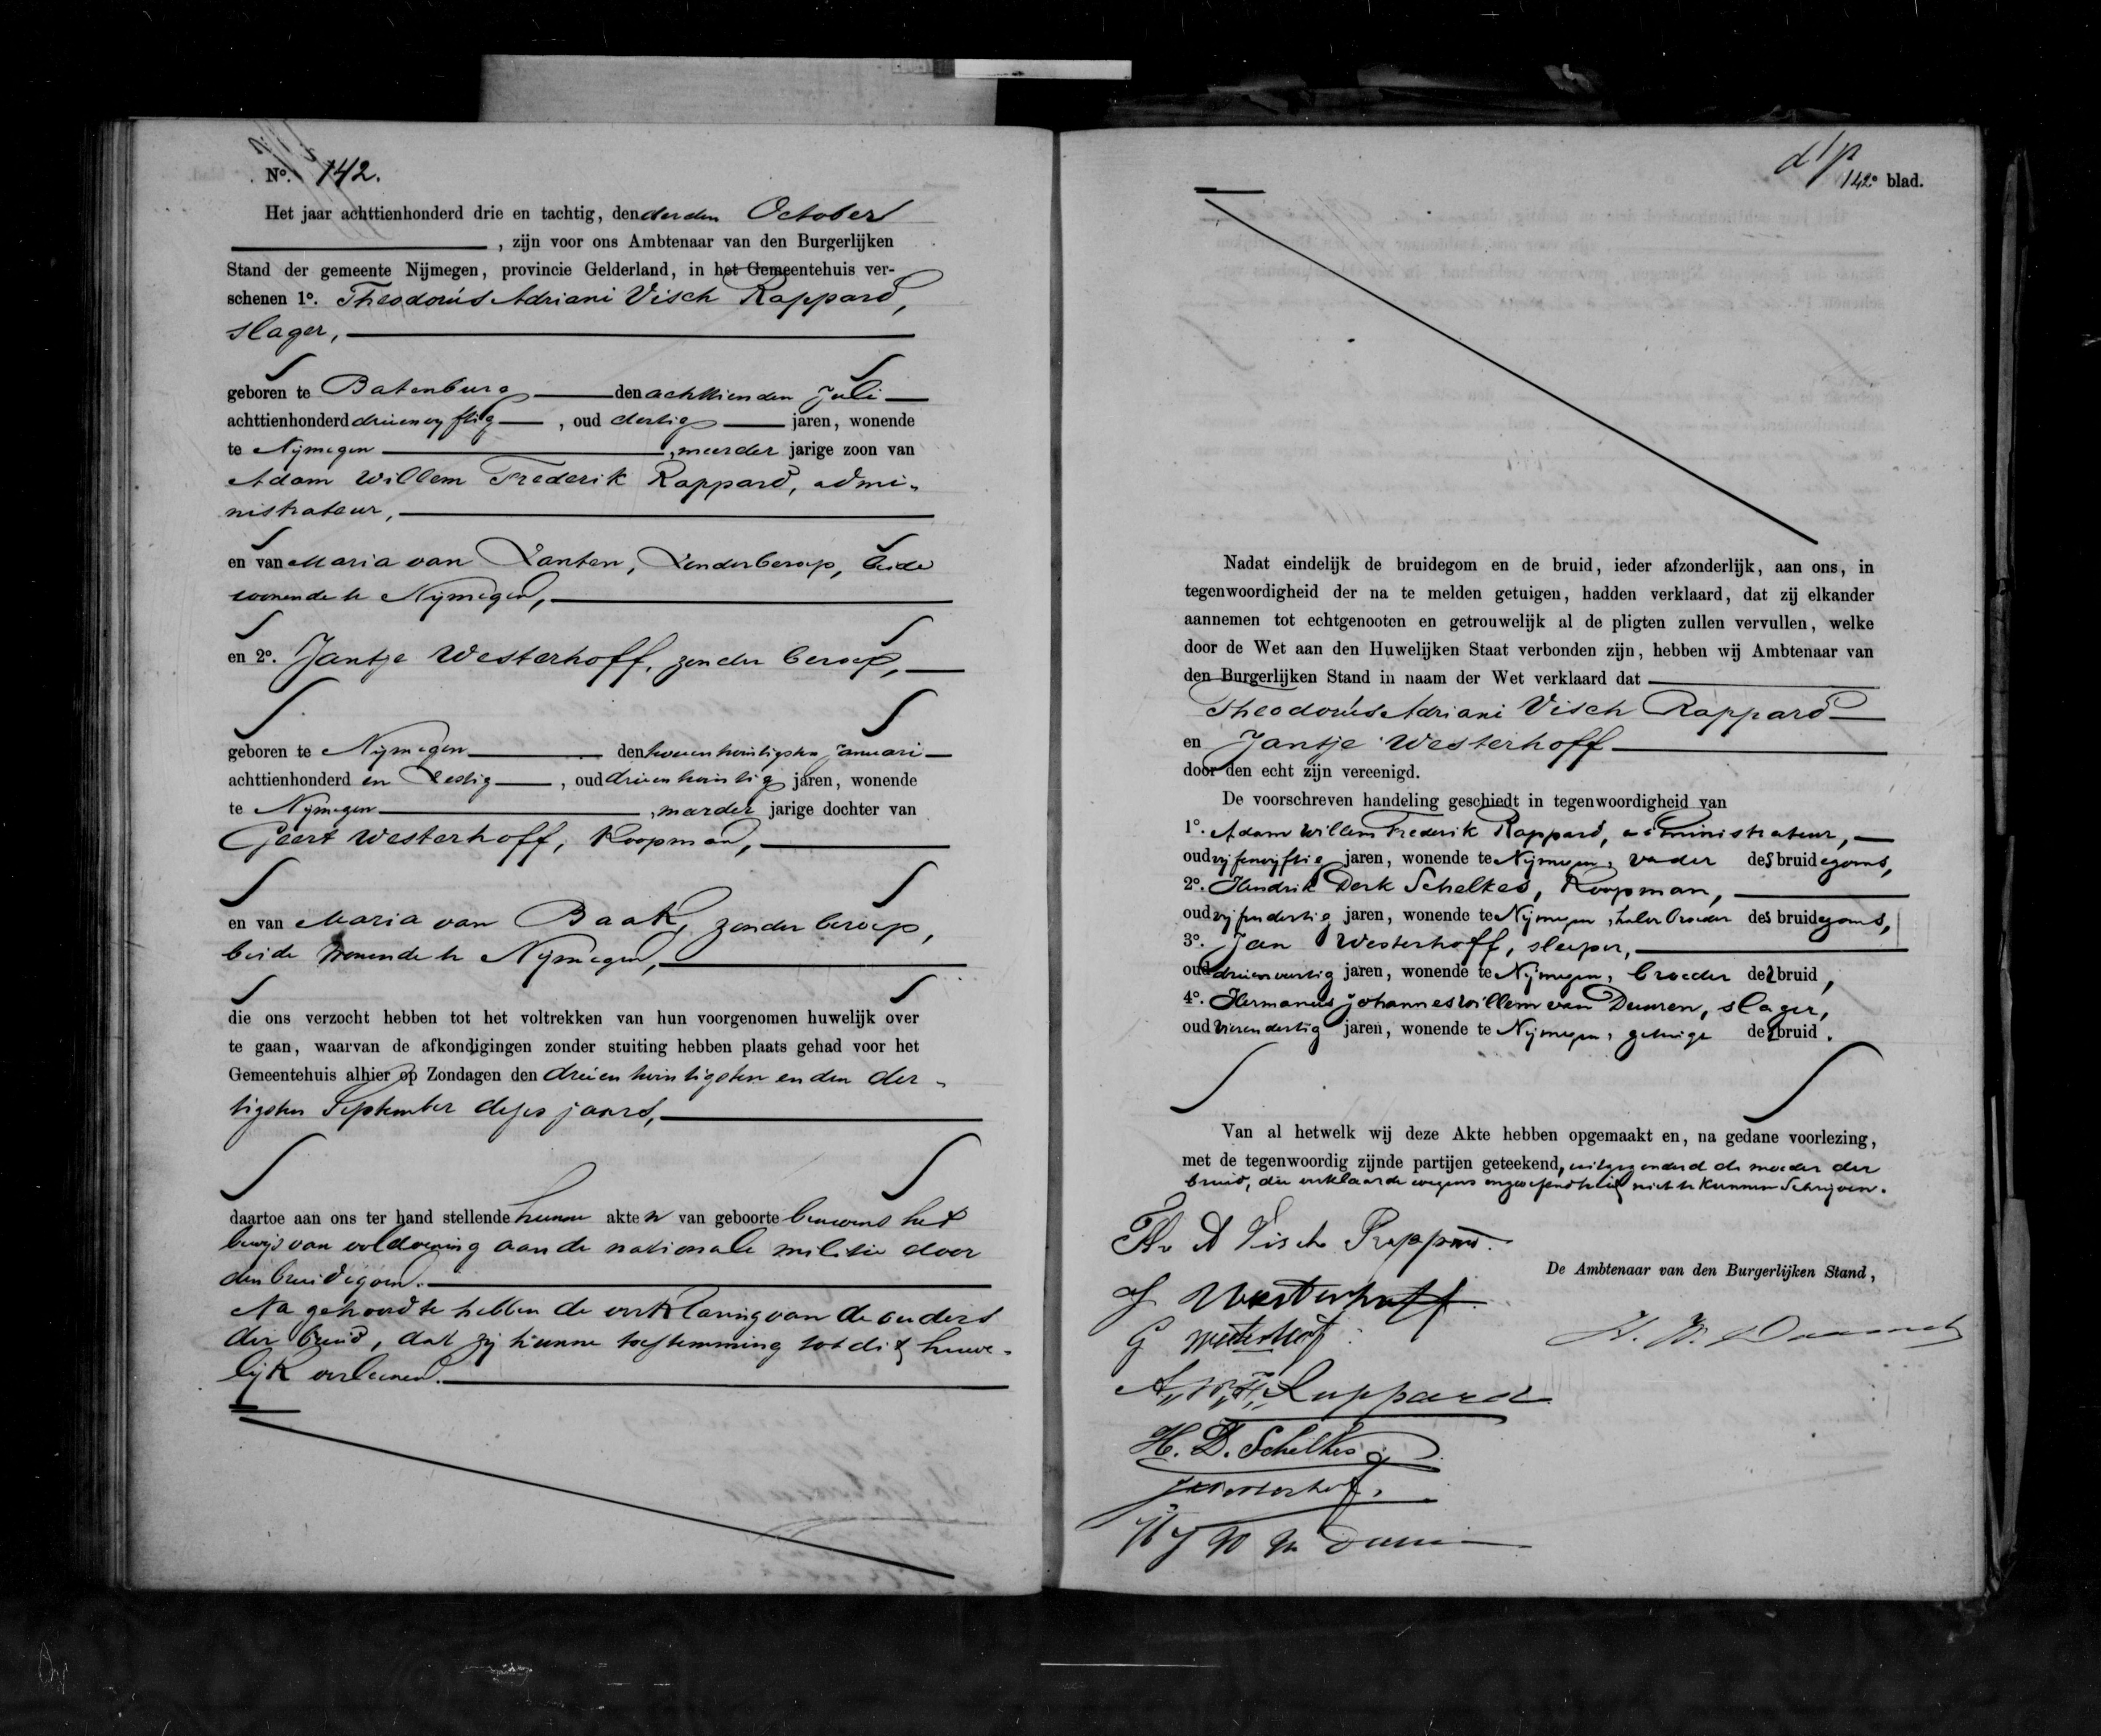 No. 142.
Het jaar achttienhonderd drie en tachtig, den derden October
, zijn voor ons Ambtenaar van den Burgerlijken
Stand der gemeente Nijmegen, provincie Gelderland, in het Gemeentehuis ver-
schenen 1o. Theodorus Adriani Visch Rappard,
slager,
geboren te Batenburg den achttienden Juli
achttienhonderd drieenvyftig, oud dertig jaren, wonende
te Nijmegen, meerder jarige zoon van
Adam Willem Frederik Rappard, admi-
nistrateur,
en van Maria van Xanten, Zonder beroep, beide
wonende te Nijmegen,
en 2o. Jantje Westerhoff, zonder beroep,
geboren te Nijmegen den tweeentwintigsten Januari
achttienhonderd en Zestig, oud drieentwintig jaren, wonende
te Nijmegen, meerder jarige dochter van
Geert Westerhoff, Koopman,
en van Maria van Baak, zonder beroep,
beide wonende te Nijmegen,
die ons verzocht hebben tot het voltrekken van hun voorgenomen huwelijk over
te gaan, waarvan de afkondigingen zonder stuiting hebben plaats gehad voor het
Gemeentehuis alhier op Zondagen den drieentwintigsten en den der-
tigsten September dezes jaars,
daartoe aan ons ter hand stellende hunne akten van geboorte benevens het
bewijs van voldoening aan de nationale militie door
den bruidegom.
Na gehoord te hebben de verklaring van de ouders
der bruid, dat zij hunne toestemming tot dit huwe-
lijk verleenen.
142e blad.
Nadat eindelijk de bruidegom en de bruid, ieder afzonderlijk, aan ons, in
tegenwoordigheid der na te melden getuigen, hadden verklaard, dat zij elkander
aannemen tot echtgenooten en getrouwelijk al de pligten zullen vervullen, welke
door de Wet aan den Huwelijken Staat verbonden zijn, hebben wij Ambtenaar van
den Burgerlijken Stand in naam der Wet verklaard dat
Theodorus Adriani Visch Rappard
en Jantje Westerhoff
door den echt zijn vereenigd.
De voorschreven handeling geschiedt in tegenwoordigheid van
1o. Adam Willem Frederik Rappard, administrateur,
oud vijfenvijftig jaren, wonende te Nijmegen, vader des bruidegoms,
2o. Hendrik Derk Schelkes, Koopman,
oud vijfendertig jaren, wonende te Nijmegen, halve broeder des bruidegoms,
3o. Jan Westerhoff, sleeper,
oud drieenveertig jaren, wonende te Nijmegen, broeder der bruid,
4o. Hermanus Johannes Willem van Deuren, slager,
oud vierendertig jaren, wonende te Nijmegen, getuige der bruid.
Van al hetwelk wij deze Akte hebben opgemaakt en, na gedane voorlezing,
met de tegenwoordig zijnde partijen geteekend, uitgezonderd de moeder der
bruid, die verklaarde wegens ongeoefendheid niet te kunnen Schrijven.
Th A Visch Rappard.
De Ambtenaar van den Burgerlijken Stand,
J Westerhoff
G Westerhoff
A,, W,, F,, Rappard
H. D. Schelkes
J Westerhof.